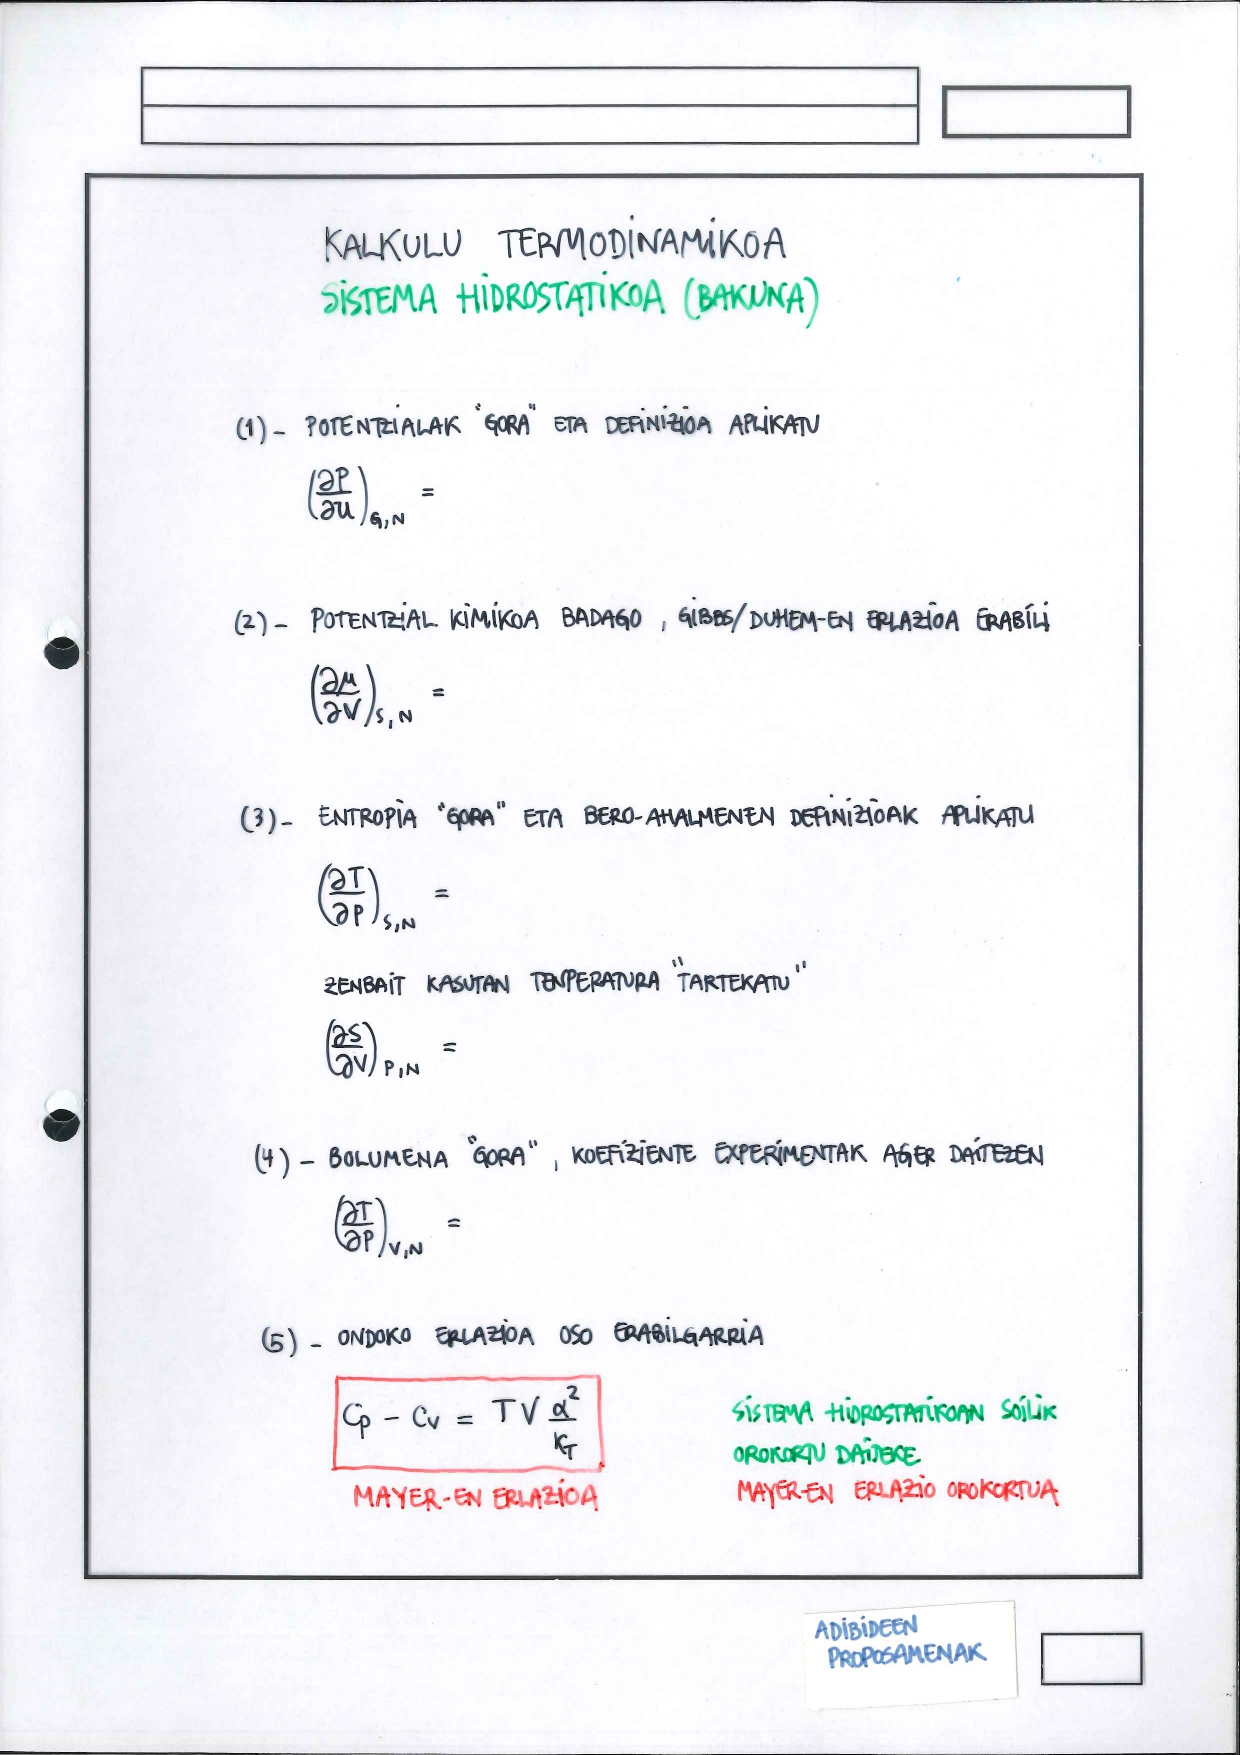 KALKULU TERMODINAMIKOA
SISTEMA HIDROSTATIKOA (BAKUNA)
(1) - POTENTZIALAK "GORA" ETA DEFINIZIOA APLIKATU
(∂P/∂U)G,N =
(2) - POTENTZIAL KIMIKOA BADAGO, GIBBS/DUHEM-EN ERLAZIOA ERABILI
(∂μ/∂V)S,N =
(3) - ENTROPIA "GORA" ETA BERO-AHALMENEN DEFINIZIOAK APLIKATU
(∂T/∂P)S,N =
ZENBAIT KASUTAN TENPERATURA "TARTEKATU"
(∂S/∂V)P,N =
(4) - BOLUMENA "GORA", KOEFIZIENTE EXPERIMENTAK AGER DAITEZEN
(∂T/∂P)V,N =
(5) - ONDOKO ERLAZIOA OSO ERABILGARRIA
Cp - Cv = TV α²/κT
MAYER-EN ERLAZIOA
SISTEMA HIDROSTATIKOAN SOILIK
OROKORTU DAITEKE
MAYER-EN ERLAZIO OROKORTUA
ADIBIDEEN
PROPOSAMENAK